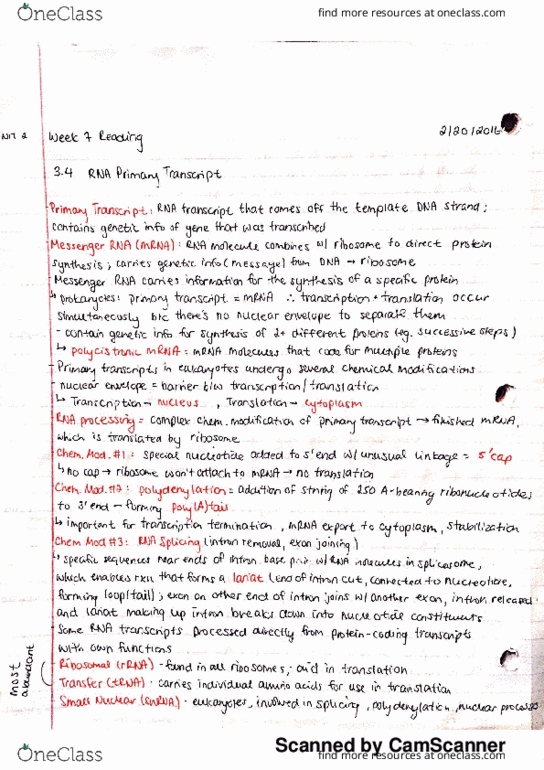 OneClass
find more resources at oneclass.com
NIT 2
Week 7 Reading
2/20/2016
3.4 RNA Primary Transcript
Primary Transcript: RNA transcript that comes off the template DNA strand;
contains genetic info of gene that was transcribed
Messenger RNA (mRNA): RNA molecule combines w/ ribosome to direct protein
synthesis; carries genetic info (message) from DNA → ribosome
Messenger RNA carries information for the synthesis of a specific protein
↳ prokaryotes: primary transcript = mRNA ∴ transcription + translation occur
simultaneously b/c there's no nuclear envelope to separate them
- contain genetic info for synthesis of 2+ different proteins (eg. successive steps)
↳ polycistronic mRNA = mRNA molecules that code for multiple proteins
Primary transcripts in eukaryotes undergo several chemical modifications
- nuclear envelope = barrier b/w transcription/translation
↳ Transcription - nucleus, Translation - cytoplasm
RNA processing = complex chem. modification of primary transcript → finished mRNA,
which is translated by ribosome
Chem. Mod. #1: special nucleotide added to 5'end w/ unusual linkage = 5'cap
↳ no cap → ribosome won't attach to mRNA → no translation
Chem. Mod. #2: polydenylation = addition of string of 250 A-bearing ribonucleotides
to 3'end - forming poly(A) tail
↳ important for transcription termination, mRNA export to cytoplasm, stabilization
Chem Mod #3: RNA Splicing (intron removal, exon joining)
↳ specific sequences near ends of intron base pair w/ RNA molecules in splicesome,
which enables rxn that forms a lariat (end of intron cut, connected to nucleotide,
forming loop/tail); exon on other end of intron joins w/ another exon, intron released
and lariat making up intron breaks down into nucleotide constituents
Some RNA transcripts processed directly from protein-coding transcripts
with own functions
most abundant
Ribosomal (rRNA) - found in all ribosomes; aid in translation
Transfer (tRNA) - carries individual amino acids for use in translation
Small Nuclear (snRNA) - eukaryotes, involved in splicing, polydenylation, nuclear processes
Scanned by CamScanner
OneClass
find more resources at oneclass.com